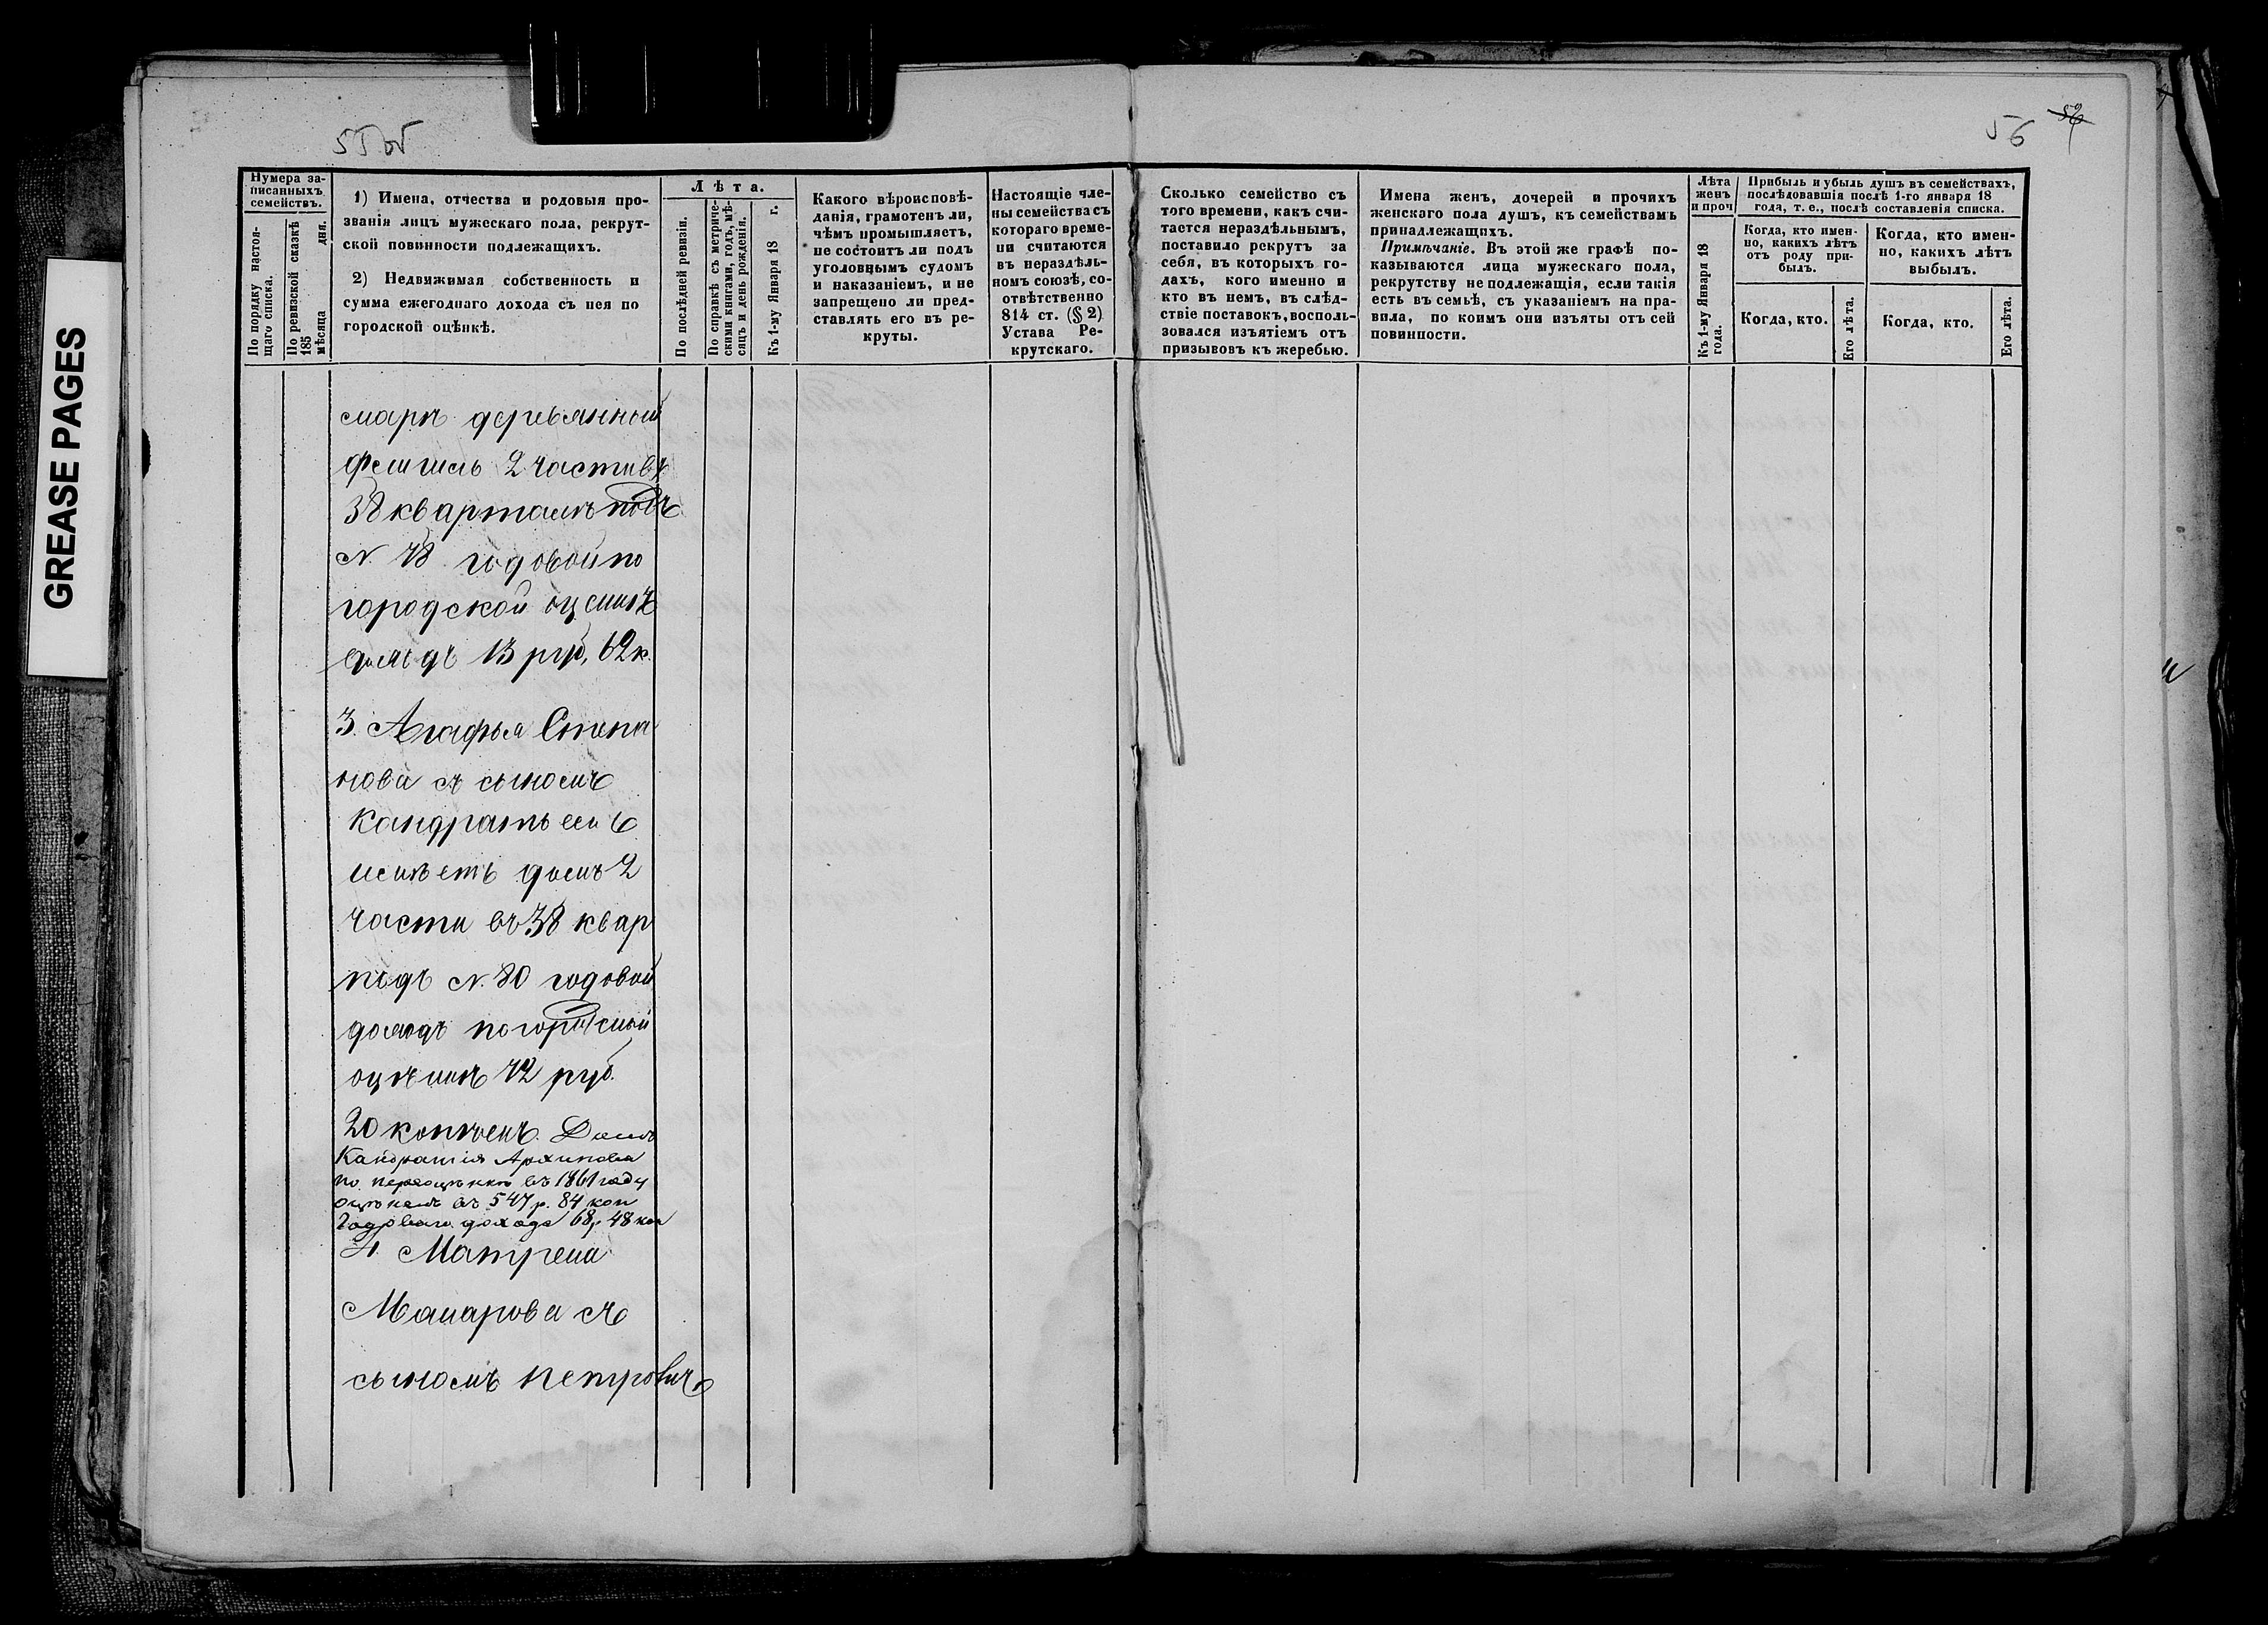 GREASE PAGES
55об
56
Нумера за-
писанныхъ
семействъ.
По порядку настоя-
щаго списка.
По ревизской сказкѣ
185 мѣсяца дня.
1) Имена, отчества и родовыя про-
званія лицъ мужескаго пола, рекрут-
ской повинности подлежащихъ.
2) Недвижимая собственность и
сумма ежегоднаго дохода съ нея по
городской оцѣнкѣ.
Лѣта.
По послѣдней ревизіи.
По справкѣ съ метриче-
скими книгами, годъ, мѣ-
сяцъ и день рожденія.
Къ 1-му Января 18 г.
Какого вѣроисповѣ-
данія, грамотенъ ли,
чѣмъ промышляетъ,
не состоитъ ли подъ
уголовнымъ судомъ
и наказаніемъ, и не
запрещено ли пред-
ставлять его въ ре-
круты.
Настоящіе чле-
ны семейства съ
котораго време-
ни считаются
въ нераздѣль-
номъ союзѣ, со-
отвѣтственно
814 ст. (§ 2)
Устава Ре-
крутскаго.
Сколько семейство съ
того времени, какъ счи-
тается нераздѣльнымъ,
поставило рекрутъ за
себя, въ которыхъ го-
дахъ, кого именно и
кто въ немъ, въ слѣд-
ствіе поставокъ, восполь-
зовался изъятіемъ отъ
призывовъ къ жеребью.
Имена женъ, дочерей и прочихъ
женскаго пола душъ, къ семействамъ
принадлежащихъ.
Примѣчаніе. Въ этой же графѣ по-
казываются лица мужескаго пола,
рекрутству не подлежащія, если такія
есть въ семьѣ, съ указаніемъ на пра-
вила, по коимъ они изъяты отъ сей
повинности.
Лѣта
женъ
и проч
Къ 1-му Января 18
года.
Прибыль и убыль душъ въ семействахъ,
послѣдовавшія послѣ 1-го января 18
года, т. е., послѣ составленія списка.
Когда, кто имен-
но, какихъ лѣтъ
отъ роду при-
былъ.
Когда, кто имен-
но, какихъ лѣтъ
выбылъ.
Когда, кто.
Его лѣта.
Когда, кто.
Его лѣта.
деревянный
2 части въ
38 кварталѣ подъ
N. 78 годовой по
городской оценкѣ
доходъ 13 руб, 62 к.
3. Агафья Степа
нова съ сыномъ
Кандратьемъ
имѣетъ домъ 2
части въ 38 квар
подъ N. 80 годовой
доходъ по городской
оцѣнкѣ 72 руб.
20 копѣекъ. Домъ
Кандратія Архипова
по переоцѣнкѣ въ 1861 году
оцѣненъ въ 547 р. 84 коп
Годоваго дохода 68 р 48 коп
4. Матрена
Макарова съ
сыномъ Петромъ